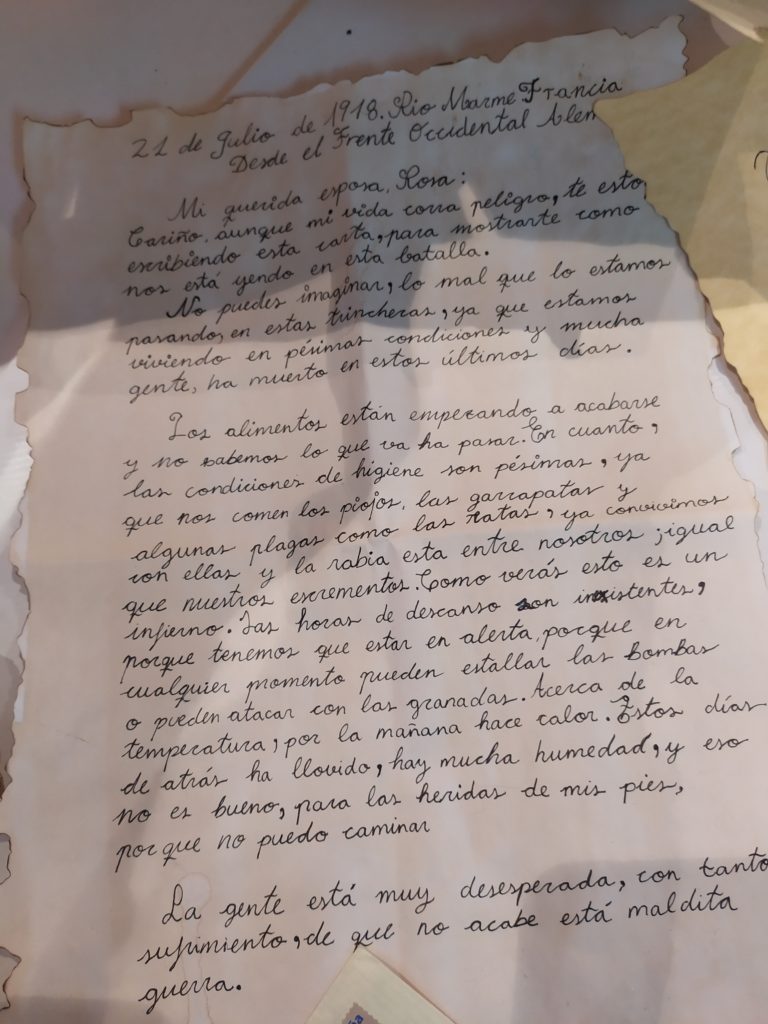 21 de Julio de 1918. Rio Marme Francia
Desde el Frente Occidental Alem
Mi querida esposa, Rosa:
Cariño, aunque mi vida corra peligro, te estoy
escribiendo esta carta, para mostrarte como
nos está yendo en esta batalla.
No puedes imaginar, lo mal que lo estamos
pasando, en estas trincheras, ya que estamos
viviendo en pésimas condiciones y mucha
gente, ha muerto en estos últimos días.
Los alimentos están empezando a acabarse
y no sabemos lo que va ha pasar. En cuanto,
las condiciones de higiene son pésimas, ya
que nos comen los piojos, las garrapatas y
algunas plagas como las ratas, ya convivimos
con ellas y la rabia esta entre nosotros, igual
que nuestros escrementos. Como verás esto es un
infierno. Las horas de descanso son inexistentes,
porque tenemos que estar en alerta, porque en
cualquier momento pueden estallar las bombas
o pueden atacar con las granadas. Acerca de la
temperatura, por la mañana hace calor. Estos días
de atrás ha llovido, hay mucha humedad, y eso
no es bueno, para las heridas de mis pies,
porque no puedo caminar
La gente está muy desesperada, con tanto
sufrimiento, de que no acabe está maldita
guerra.